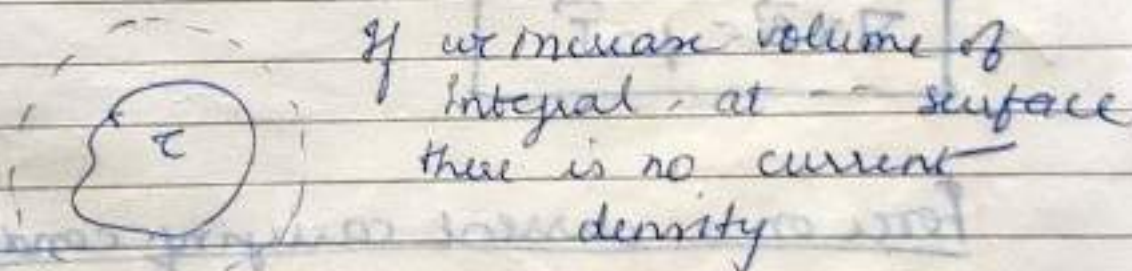 If we increase volume of
τ
integral, at --- surface
there is no current
density